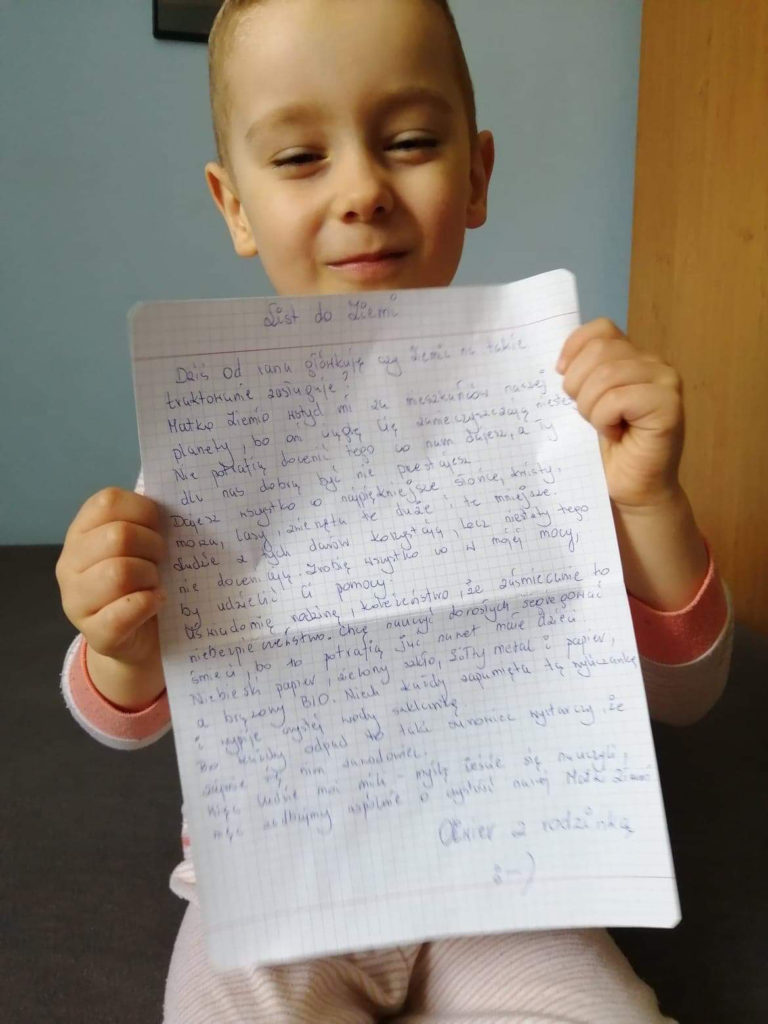 List do Ziemi
Dziś od rana główkuję czy Ziemia na takie
traktowanie zasługuje?
Matko Ziemio wstyd mi za mieszkańców naszej
planety, bo oni ciągle Cię zanieczyszczają niestety
Nie potrafią docenić tego co nam dajesz, a Ty
dla nas dobrą być nie przestajesz.
Dajesz wszystko co najpiękniejsze słońce, kwiaty,
morza, lasy, zwierzęta te duże i te mniejsze.
Ludzie z tych darów korzystają, lecz niestety tego
nie doceniają. Zrobię wszystko co w mojej mocy,
by udzielić Ci pomocy.
Uświadomię rodzinę, koleżeństwo, że zaśmiecanie to
niebezpieczeństwo. Chcę nauczyć dorosłych segregować
śmieci, bo to potrafią już nawet małe dzieci.
Niebieski papier, zielony szkło, żółty metal i papier,
a brązowy BIO. Niech każdy zapamięta tę wyliczankę
i wypije czystej wody szklankę.
Bo każdy odpad to taki surowiec wystarczy, że
zajmie się nim zawodowiec.
Więc ludzie moi mili myślę żeście się nauczyli,
więc zadbajmy wspólnie o czystość naszej Matki Ziemi
Oliwier z rodzinką
:-)